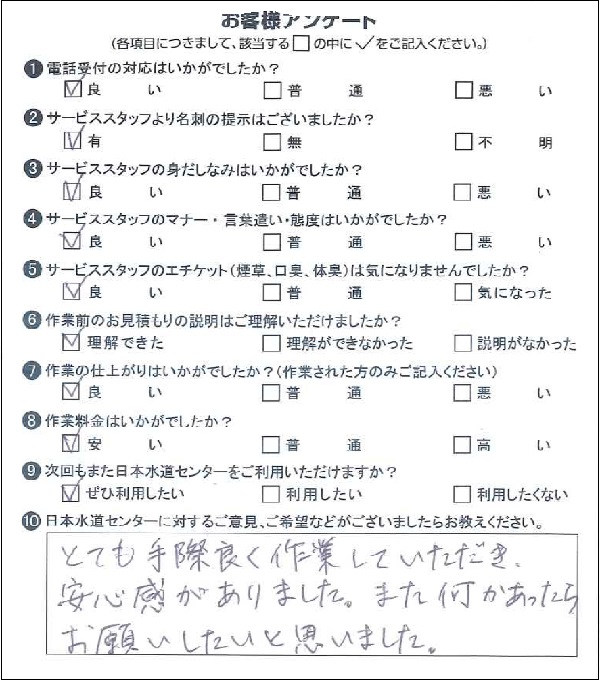 お客様アンケート
(各項目につきまして、該当する□の中に✓をご記入ください。)
❶電話受付の対応はいかがでしたか?
☑良い □普通 □悪い
❷サービススタッフより名刺の提示はございましたか?
☑有 □無 □不明
❸サービススタッフの身だしなみはいかがでしたか?
☑良い □普通 □悪い
❹サービススタッフのマナー・言葉遣い・態度はいかがでしたか?
☑良い □普通 □悪い
❺サービススタッフのエチケット(煙草、口臭、体臭)は気になりませんでしたか?
☑良い □普通 □気になった
❻作業前のお見積もりの説明はご理解いただけましたか?
☑理解できた □理解ができなかった □説明がなかった
❼作業の仕上がりはいかがでしたか?(作業された方のみご記入ください)
☑良い □普通 □悪い
❽作業料金はいかがでしたか?
☑安い □普通 □高い
❾次回もまた日本水道センターをご利用いただけますか?
☑ぜひ利用したい □利用したい □利用したくない
❿日本水道センターに対するご意見、ご希望などがございましたらお教えください。
とても手際良く作業していただき、
安心感がありました。また何かあったら
お願いしたいと思いました。